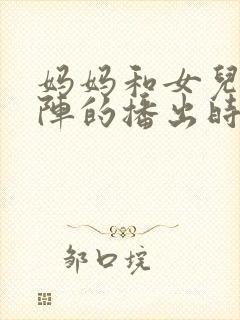 妈妈和女兒
陣的播出時
邹口境